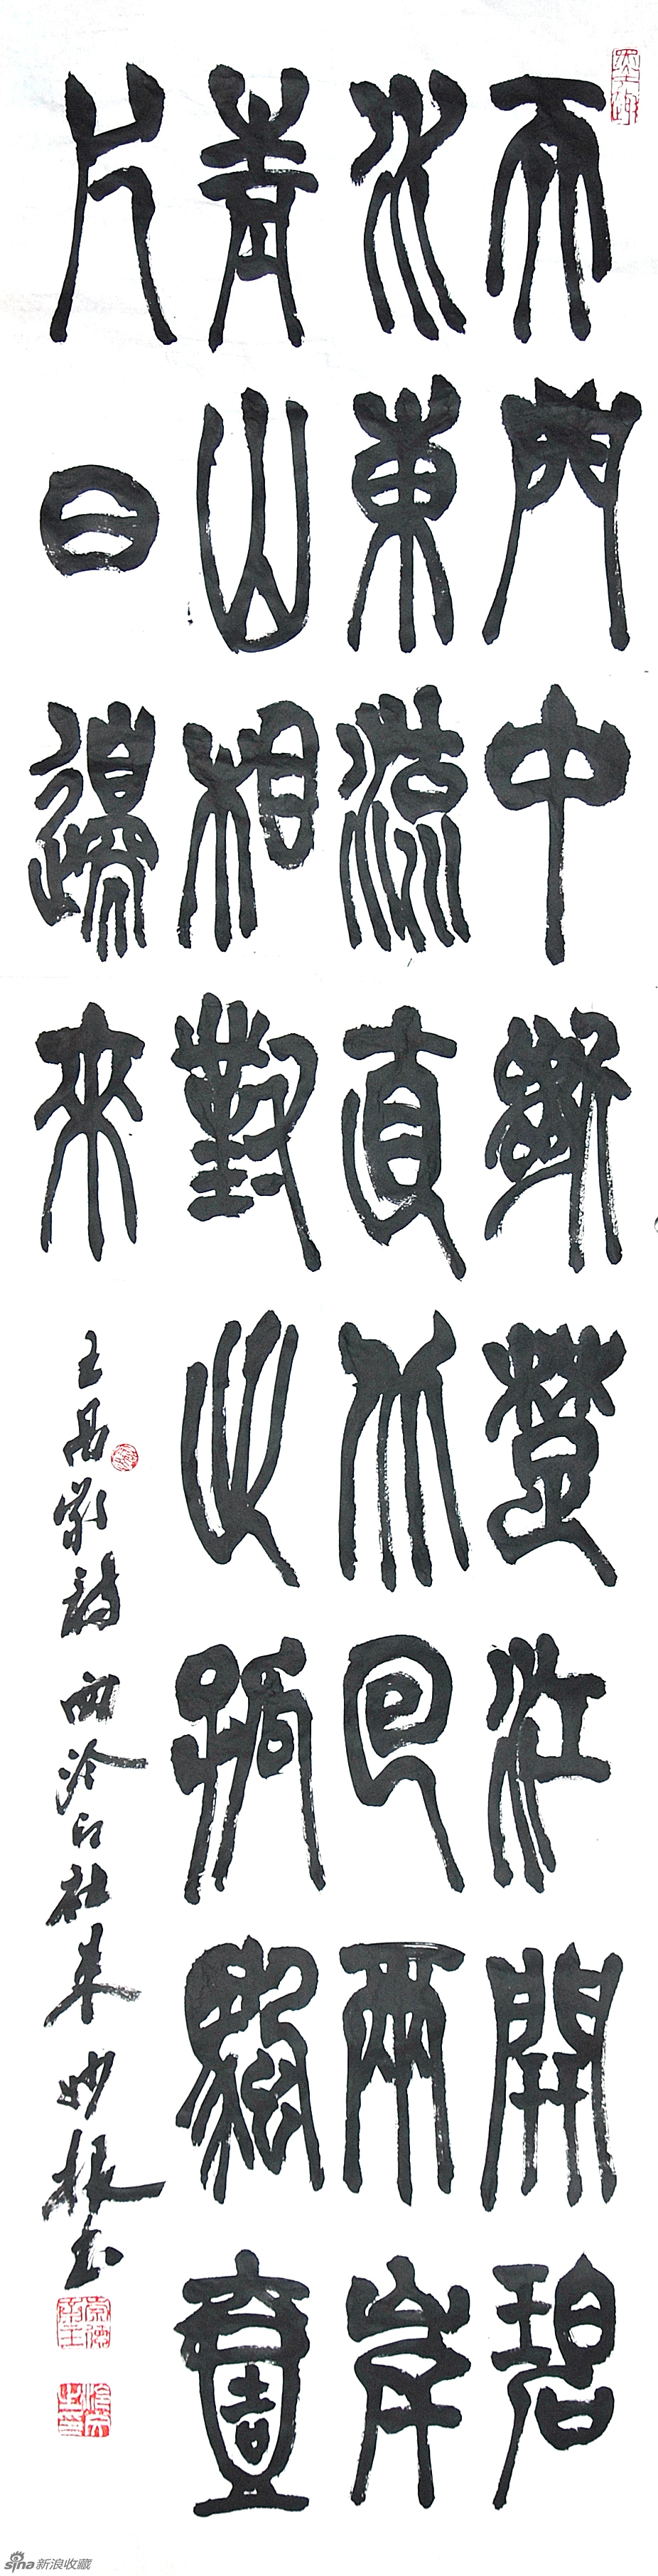 天門中斷楚江開碧
水東流直北回兩岸
青山相對出孤颿壹
片日邊來
王昌齡詩 西泠印社朱妙根書
sina新浪收藏